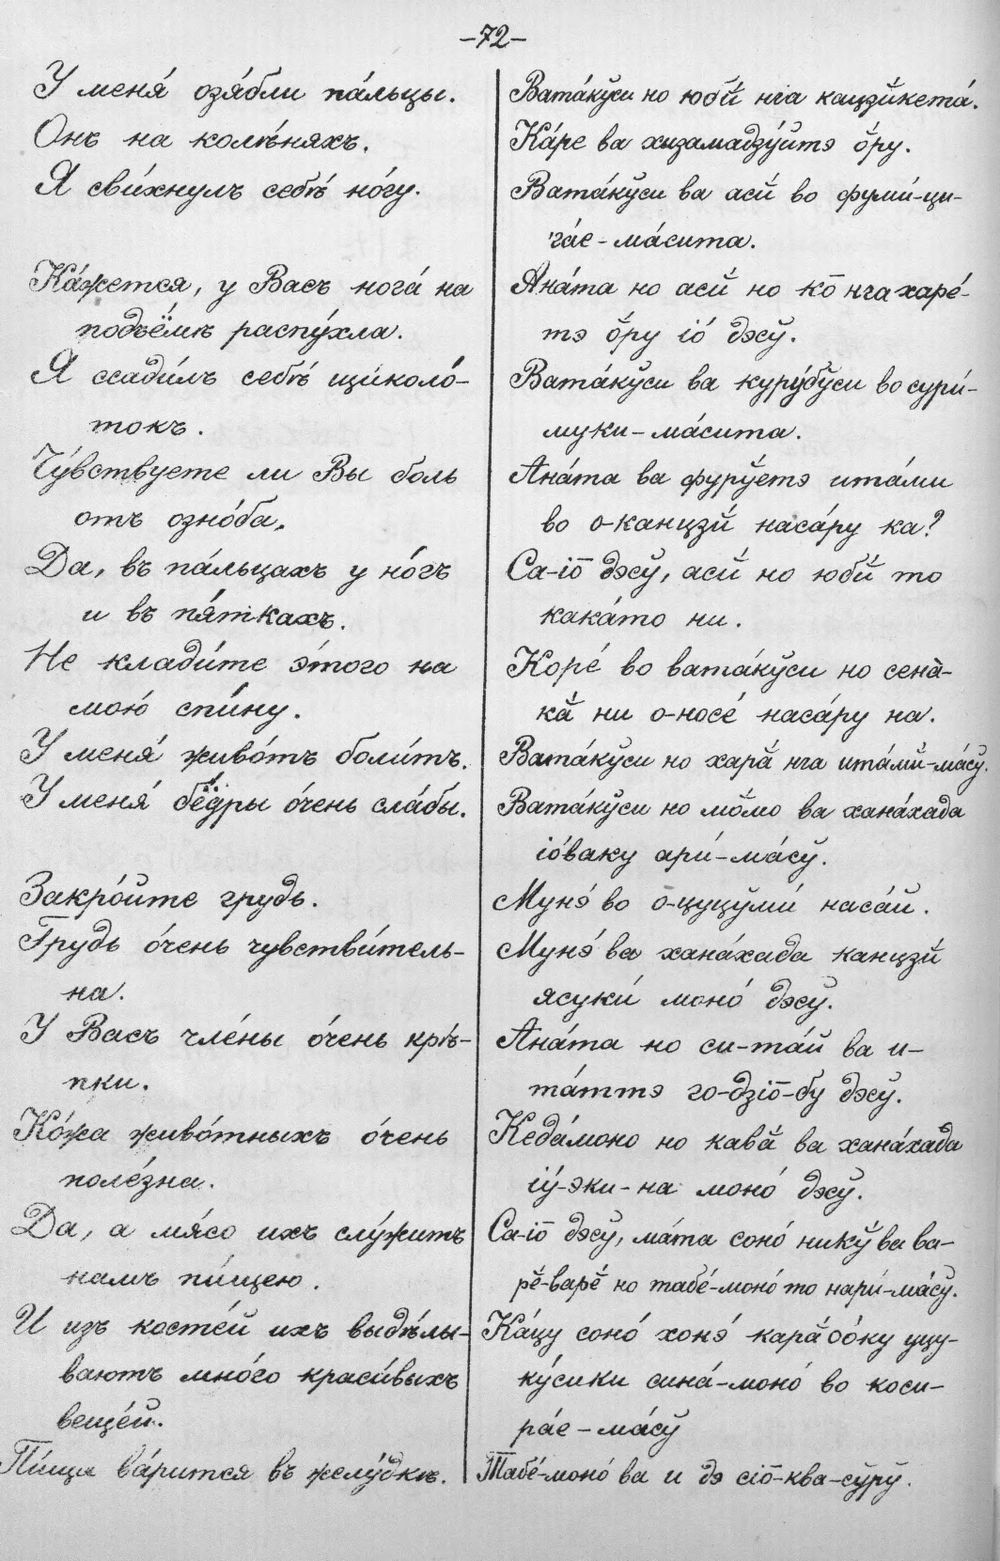 —72—
У меня́ озя́бли па́льцы.
Онъ на колѣ́няхъ.
Я сви́хнулъ себѣ́ но́гу.
Ка́жется, у Васъ нога́ на
подъёмѣ распу́хла.
Я ссади́лъ себѣ́ щиколо́-
токъ.
Чу́вствуете ли Вы боль
отъ озно́ба.
Да, въ па́льцахъ у но́гъ
и въ пя́ткахъ.
Не клади́те э́того на
мою́ спи́ну.
У меня́ живо́тъ боли́тъ.
У меня́ бёдры о́чень сла́бы.
Закро́йте грудь.
Грудь о́чень чувстви́тель-
на.
У Васъ чле́ны о́чень крѣ́-
пки.
Ко́жа живо́тныхъ о́чень
поле́зна.
Да, а мя́со ихъ слу́житъ
намъ пи́щею.
И изъ косте́й ихъ выдѣлы-
ваютъ мно́го краси́выхъ
веще́й.
Пи́ща ва́рится въ желу́дкѣ.
Вата́кӯси но юби́ нга канцзи́кета́.
Ка́ре ва хизамадзу́йтэ о́ру.
Вата́кӯси ва аси́ во фуми́-ци-
га́е-ма́сита.
Ана́та но аси́ но ко̄ нга харе́-
тэ о́ру іо́ дэсў.
Вата́кўси ва куру́бўси во сури́-
муки-ма́сита.
Ана́та ва фуру́етэ ита́ми
во о-канцзи́ наса́ру ка?
Са-іо̄ дэсў, аси́ но юби́ то
кака́то ни.
Коре́ во вата́кўси но сена́-
кӑ ни о-носе́ наса́ру на.
Вата́кўси но хара́ нга ита́ми́-ма́сў.
Вата́кўси но мо́мо ва хана́хада
іо́ваку ари́-ма́сў.
Мунэ́ во о-цуцуми́ наса́й.
Мунэ́ ва хана́хада канцзи́
ясуки́ моно́ дэсў.
Ана́та но си-та́й ва и-
та́ттэ го-дзіо̄-бу дэсў.
Кеда́моно но кава́ ва хана́хада
іу́-эки-на моно́ дэсў.
Са-іо̄ дэсў, ма́та соно́ нику́ ва ва-
рĕ-варе́ но табе́-моно́ то нари́-ма́сў.
Ка́цу соно́ хонэ́ кара́ о́о́ку уцу-
ку́сики сина́-моно́ во коси-
ра́е-ма́сў
Табе́-моно́ ва и дэ сіо̄-ква-сўрў.